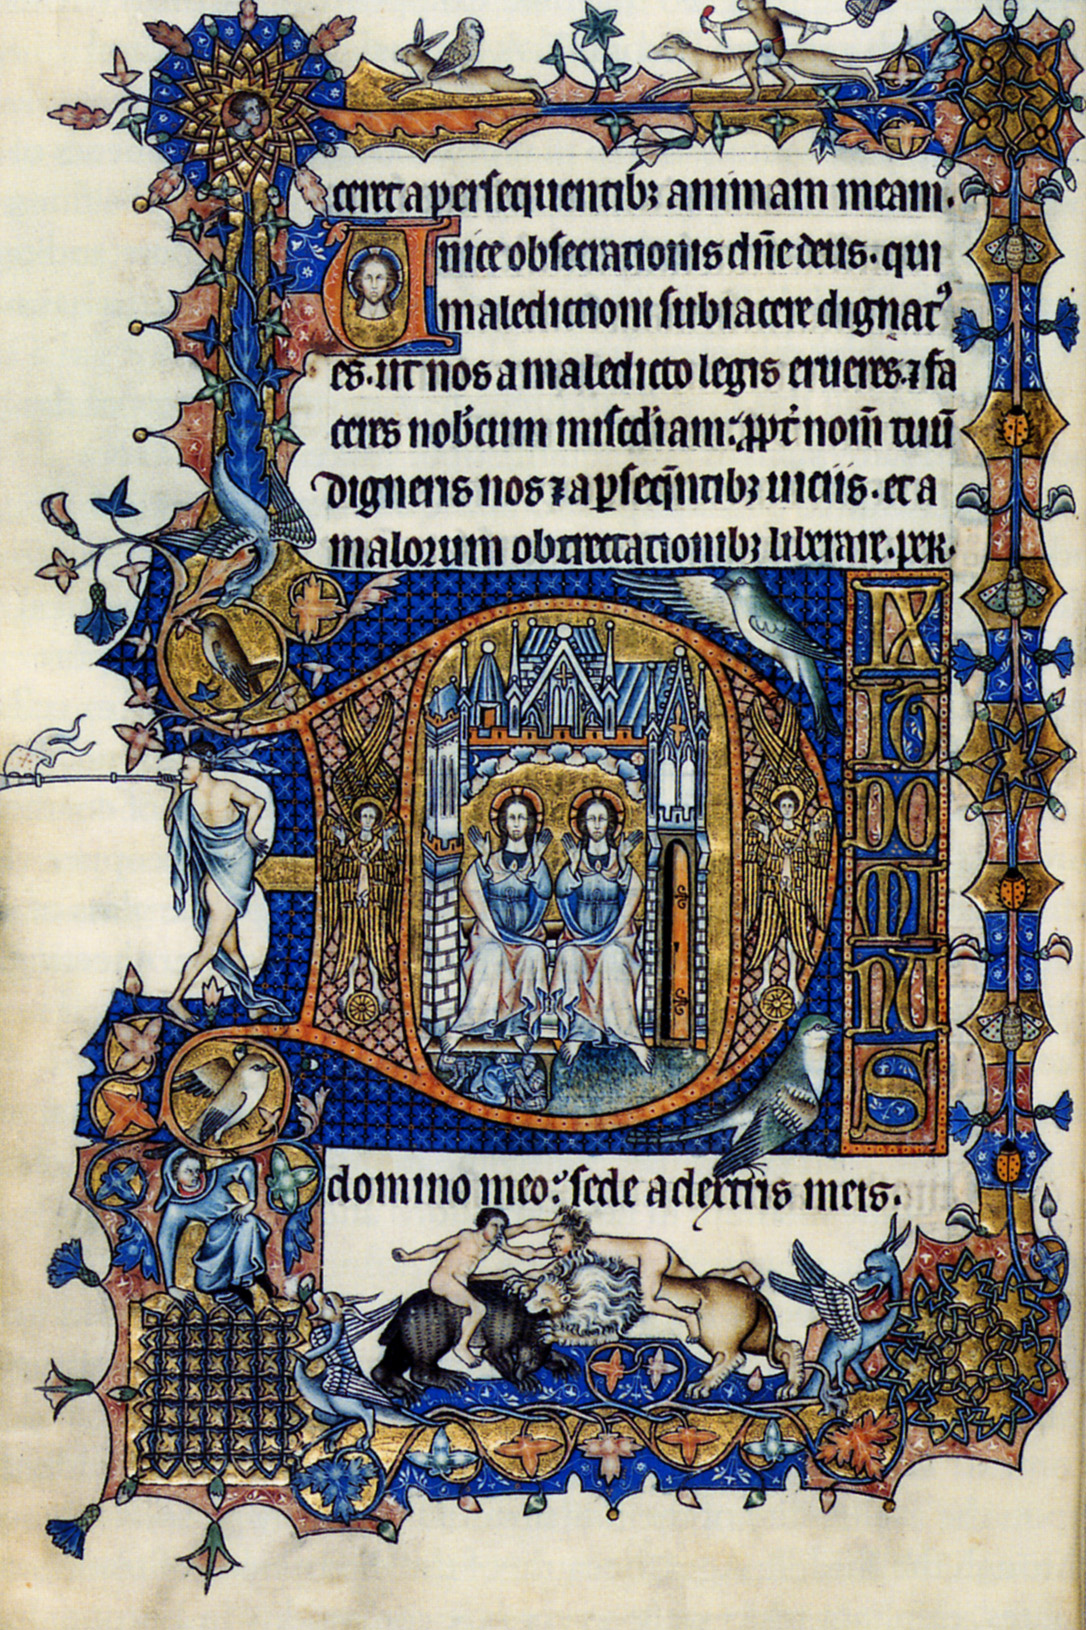 ceret a persequentibꝫ animam meam.
Unice obsecrationis dn̄e deus. qui
maledictioni subiacere dignatꝰ
es. ut nos a maledicto legis erueres. ⁊ fa
ceres nob̄cum mis̄cdiam: ꝓpt̄ nom̄ tuū
digneris nos ⁊ a ꝑseq̄ntibꝫ uiciis. et a
malorum obtrectationibꝫ liberare. per.
DIXIT DOMINUS
domino meo: sede a dextris meis.